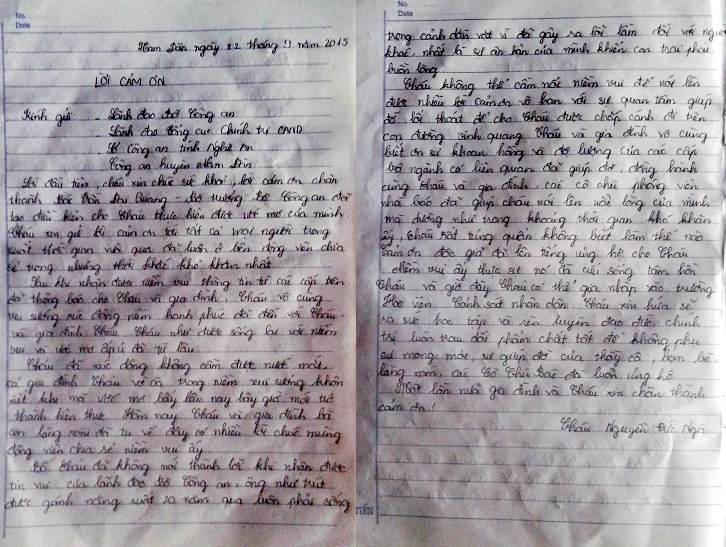 No.
Date
Nam Đàn ngày 22 tháng 9 năm 2015
LỜI CẢM ƠN
Kính gửi - Lãnh đạo Bộ Công an
Lãnh đạo tổng cục Chính trị CAND
Sở Công an tỉnh Nghệ An
Công an huyện Nam Đàn.
Lời đầu tiên, cháu xin chúc sức khỏe, lời cảm ơn chân
thành Bác Trần Đại Quang - Bộ trưởng Bộ Công an đã
tạo điều kiện cho Cháu thực hiện được ước mơ của mình
Cháu xin gửi lời cảm ơn tới tất cả mọi người trong
suốt thời gian vừa qua đã luôn ở bên động viên chia
sẻ trong những thời khắc khó khăn nhất
Sau khi nhận được niềm vui thông tin từ các cấp trên
đã thông báo cho Cháu và gia đình, Cháu vô cùng
vui sướng xúc động niềm hạnh phúc đã đến với Cháu
và gia đình Cháu. Cháu như được sống lại với niềm
vui và ước mơ ấp ủ đã từ lâu
Cháu đã xúc động không cầm được nước mắt,
cả gia đình Cháu vỡ òa trong niềm vui sướng khôn
xiết khi mà ước mơ bấy lâu nay bây giờ mới trở
thành hiện thực. Hôm nay Cháu và gia đình bà
con làng xóm đã tụ về đây có nhiều lời chúc mừng
động viên chia sẻ niềm vui ấy
Bố Cháu đã không nói thành lời khi nhận được
tin vui của lãnh đạo Bộ Công an, ông như trút
được gánh nặng suốt 20 năm qua luôn phải sống
No.
Date
trong cảnh dằn vặt vì đã gây ra lỗi lầm đối với người
khác, nhất là sự ân hận của mình khiến con trai phải
buồn lòng.
Cháu không thể cầm nổi niềm vui để nói lên
được nhiều lời cảm ơn vô bạn với sự quan tâm giúp
đỡ lối thoát để cho Cháu được chắp cánh đi trên
con đường vinh quang. Cháu và gia đình vô cùng
biết ơn sự khoan hồng và độ lượng của các cấp
bộ ngành có liên quan đã giúp đỡ, đồng hành
cùng Cháu và gia đình, các cô chú phóng viên
nhà báo đã giúp cháu nói lên nỗi lòng của mình
mà dường như trong khoảng thời gian khó khăn
ấy, Cháu rất túng quẫn không biết làm thế nào
cảm ơn độc giả đã lên tiếng ủng hộ cho Cháu
Niềm vui ấy thực sự nó đã cứu sống tâm hồn
Cháu và giờ đây Cháu có thể gia nhập vào trường
Học viện Cảnh sát nhân dân. Cháu xin hứa sẽ
ra sức học tập và rèn luyện đạo đức chính
trị luôn trau dồi phẩm chất tốt để không phụ
sự mong mỏi, sự giúp đỡ của thầy cô, bạn bè
làng xóm, các Cô Chú Bác đã luôn ủng hộ
Một lần nữa gia đình và Cháu xin chân thành
cảm ơn!
Cháu Nguyễn Đức Ngà
TIẾN